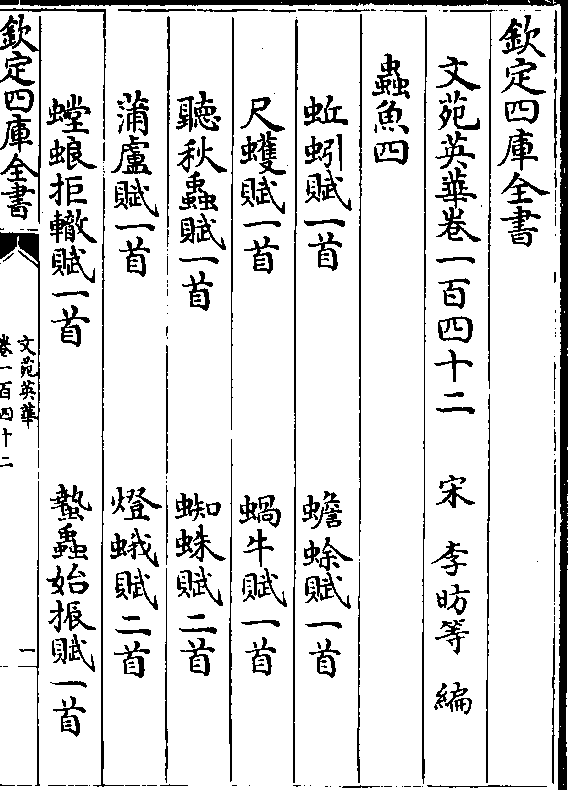 欽定四庫全書
文苑英華卷一百四十二　宋　李昉等　編
蟲魚四
蚯蚓賦一首　蟾蜍賦一首
尺蠖賦一首　蝸牛賦一首
聽秋蟲賦一首　蜘蛛賦二首
蒲盧賦一首　燈蛾賦二首
螳蜋拒轍賦一首　蟄蟲始振賦一首
欽定四庫全書
文苑英華
卷一百四十二
一